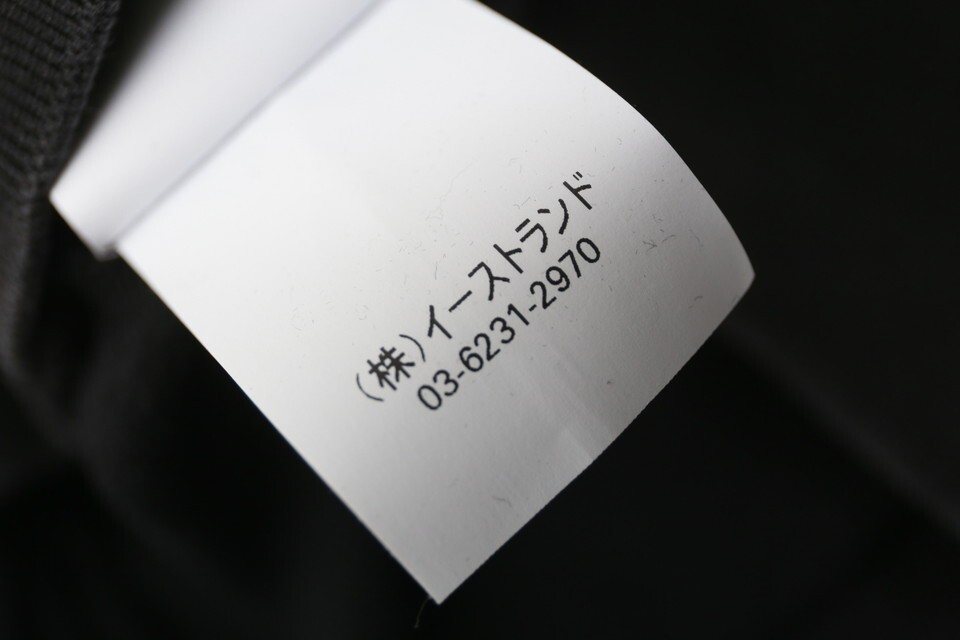 (株)イーストランド
03-6231-2970